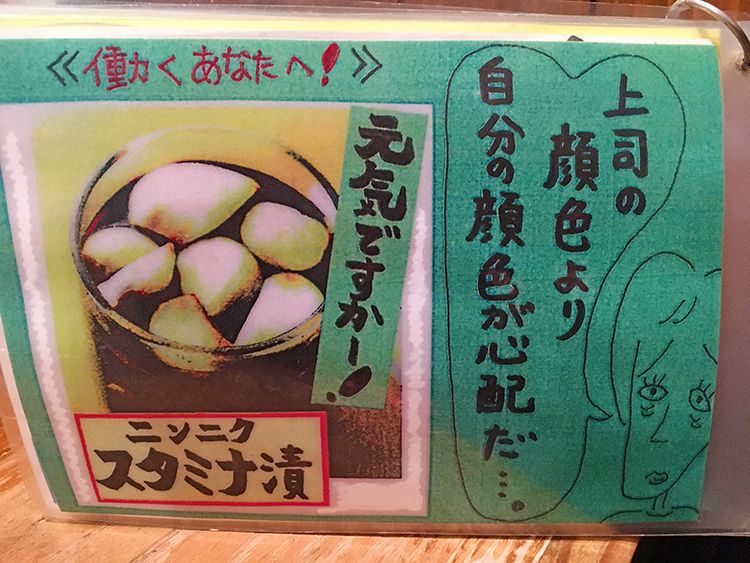 ≪働くあなたへ!≫
元気ですかー!
ニンニク
スタミナ漬
上司の
顔色より
自分の顔色が心配だ…。